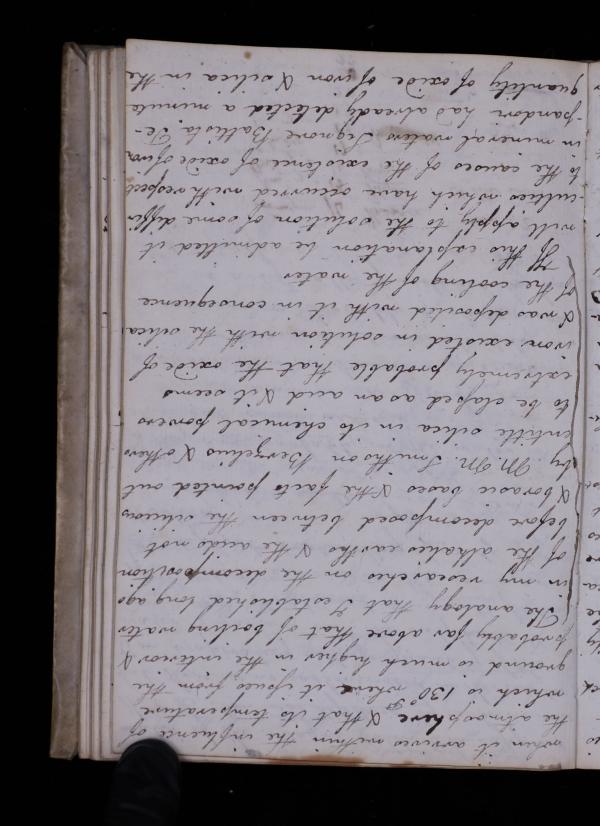 when it arrives within the influence of
the atmosphere & that its temperature
which is 130° gr where it issues from the
ground is much higher in the interior &
probably far above that of boiling water
The analogy that I established long ago
in my researches on the decomposition
of the alkalies earths & the acids not
before decomposed between the siliceous
& boracic bases & the facts pointed out
by M. M. Smithson Berzelius & others
entitle silica in its chemical powers
to be classed as an acid & it seems
extremely probable that the oxide of
iron existed in solution with the silica
& was deposited with it in consequence
of the cooling of the water
If this explanation be admitted it
will apply to the solution of some diffi-
-culties which have occurred with respect
to the causes of the existence of oxide of iron
in mineral waters Signore Battista Te-
-pandori had already detected a minute
quantity of oxide of iron & silica in the